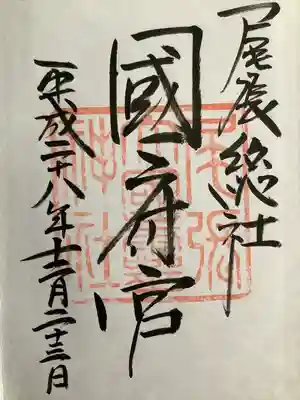 尾張総社
國府宮
平成二十八年十二月二十三日